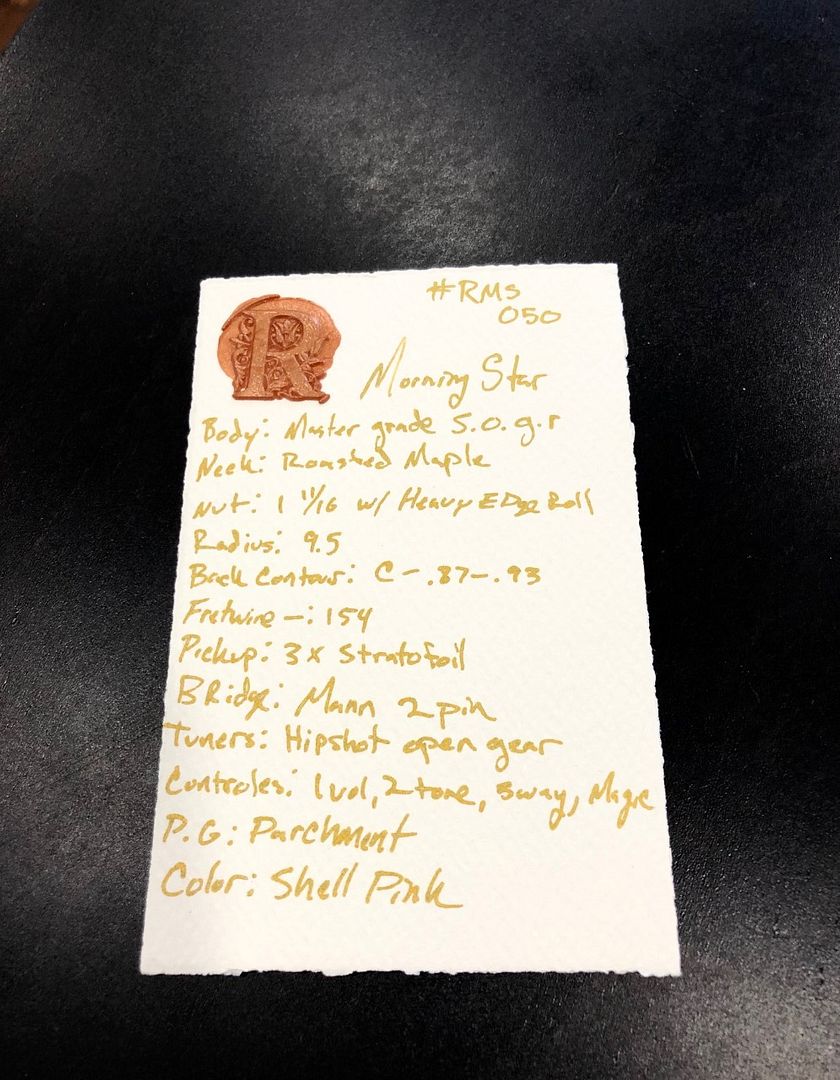 R
#RMS
050
Morning Star
Body: Master grade S.O.g.r
Neck: Roasted Maple
Nut: 1 11/16 w/ Heavy EDge Roll
Radius: 9.5
Back Contour: C - .87-.93
Fretwire -: 154
Pickup: 3x Stratofoil
BRidge: Mann 2 pin
Tuners: Hipshot open gear
Controles: 1 vol, 2 tone, 5way,
P.G: Parchment
Color: Shell Pink